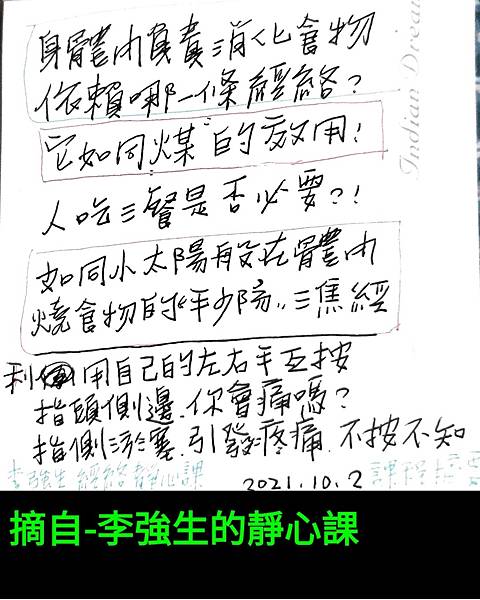 身體內負責消化食物
依賴哪一條經絡？
它如同"煤"的效用！
人吃三餐是否必要？！
如同小太陽般在體內
燒食物的"手少陽"三焦經
利用自己的左右手互按
指頭側邊.你會痛嗎？
指側淤塞.引發疼痛.不按不知
李強生經絡靜心課
2021.10.2
課程摘要
Indian Drea
摘自-李強生的靜心課